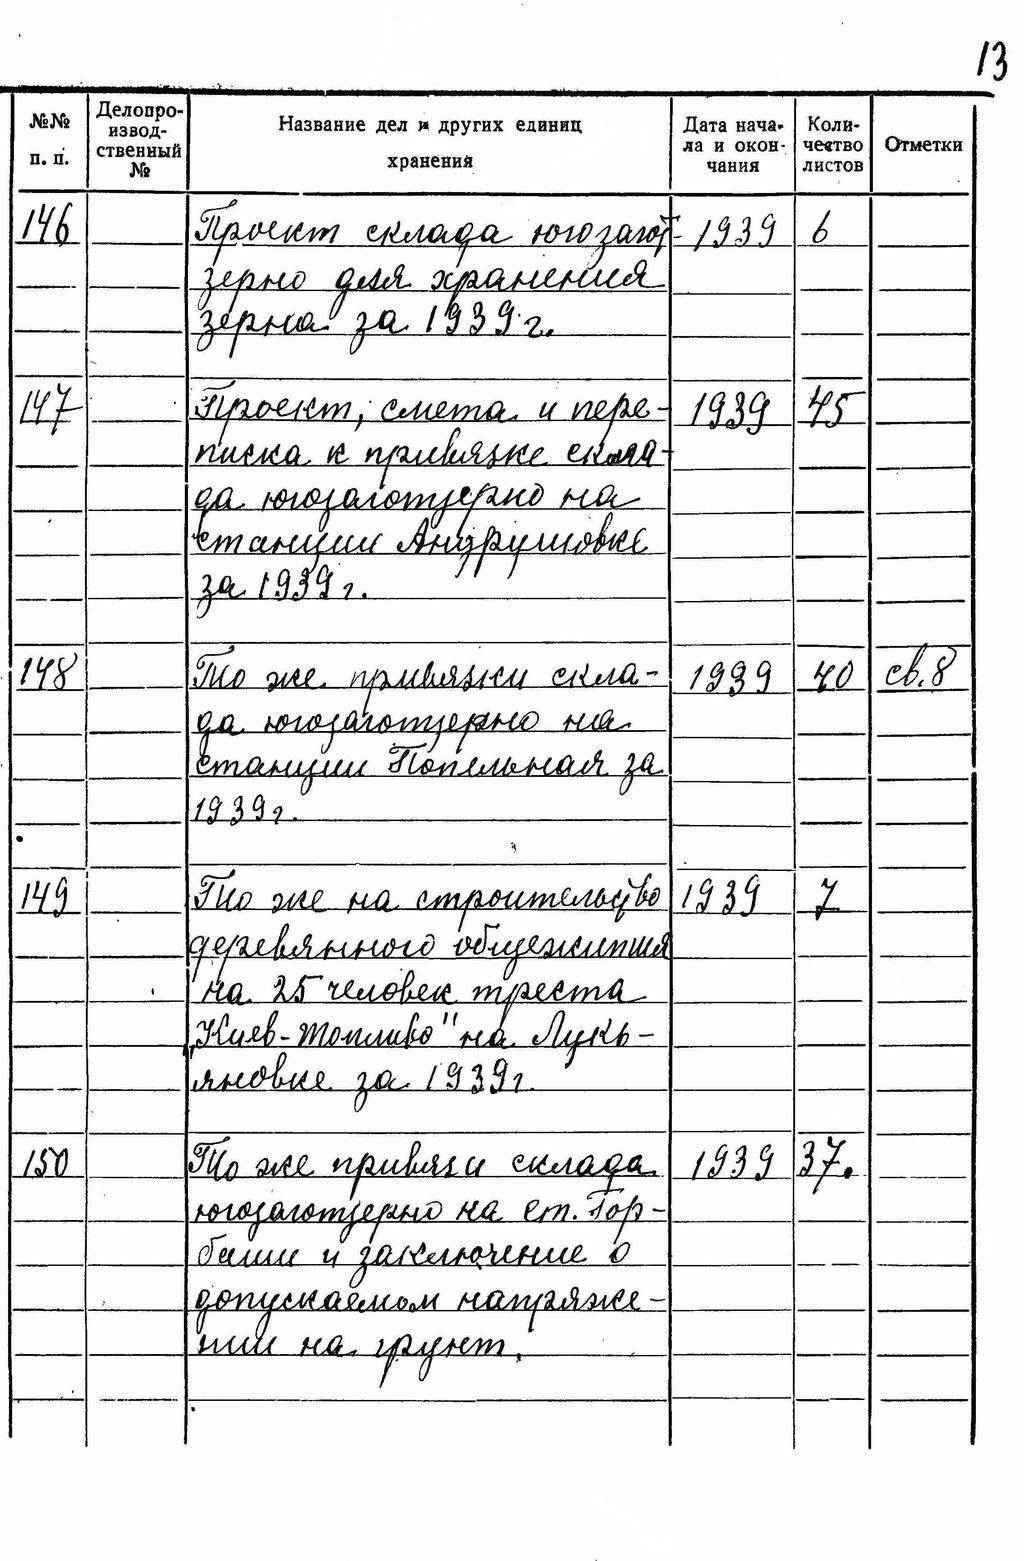 13
№№ п. п. Делопро-изводственный № Название дел и других единиц хранения Дата начала и окончания Количество листов Отметки
146 Проект склада югозагот- 1939 6
зерно для хранения
зерна за 1939 г.
147 Проект, смета и пере- 1939 45
писка к привязке скла-
да югозаготзерно на
станции Андрушовке
за 1939 г.
148 То же привязки скла- 1939 40 св. 8
да югозаготзерно на
станции Попельная за
1939 г.
149 То же на строительство 1939 7
деревянного общежития
на 25 человек треста
„Киев-Топливо" на Лукь-
яновке за 1939 г.
150 То же привязи склада 1939 37.
югозаготзерно на ст. Гор-
баши и заключение о
допускаемом напряже-
нии на грунт.